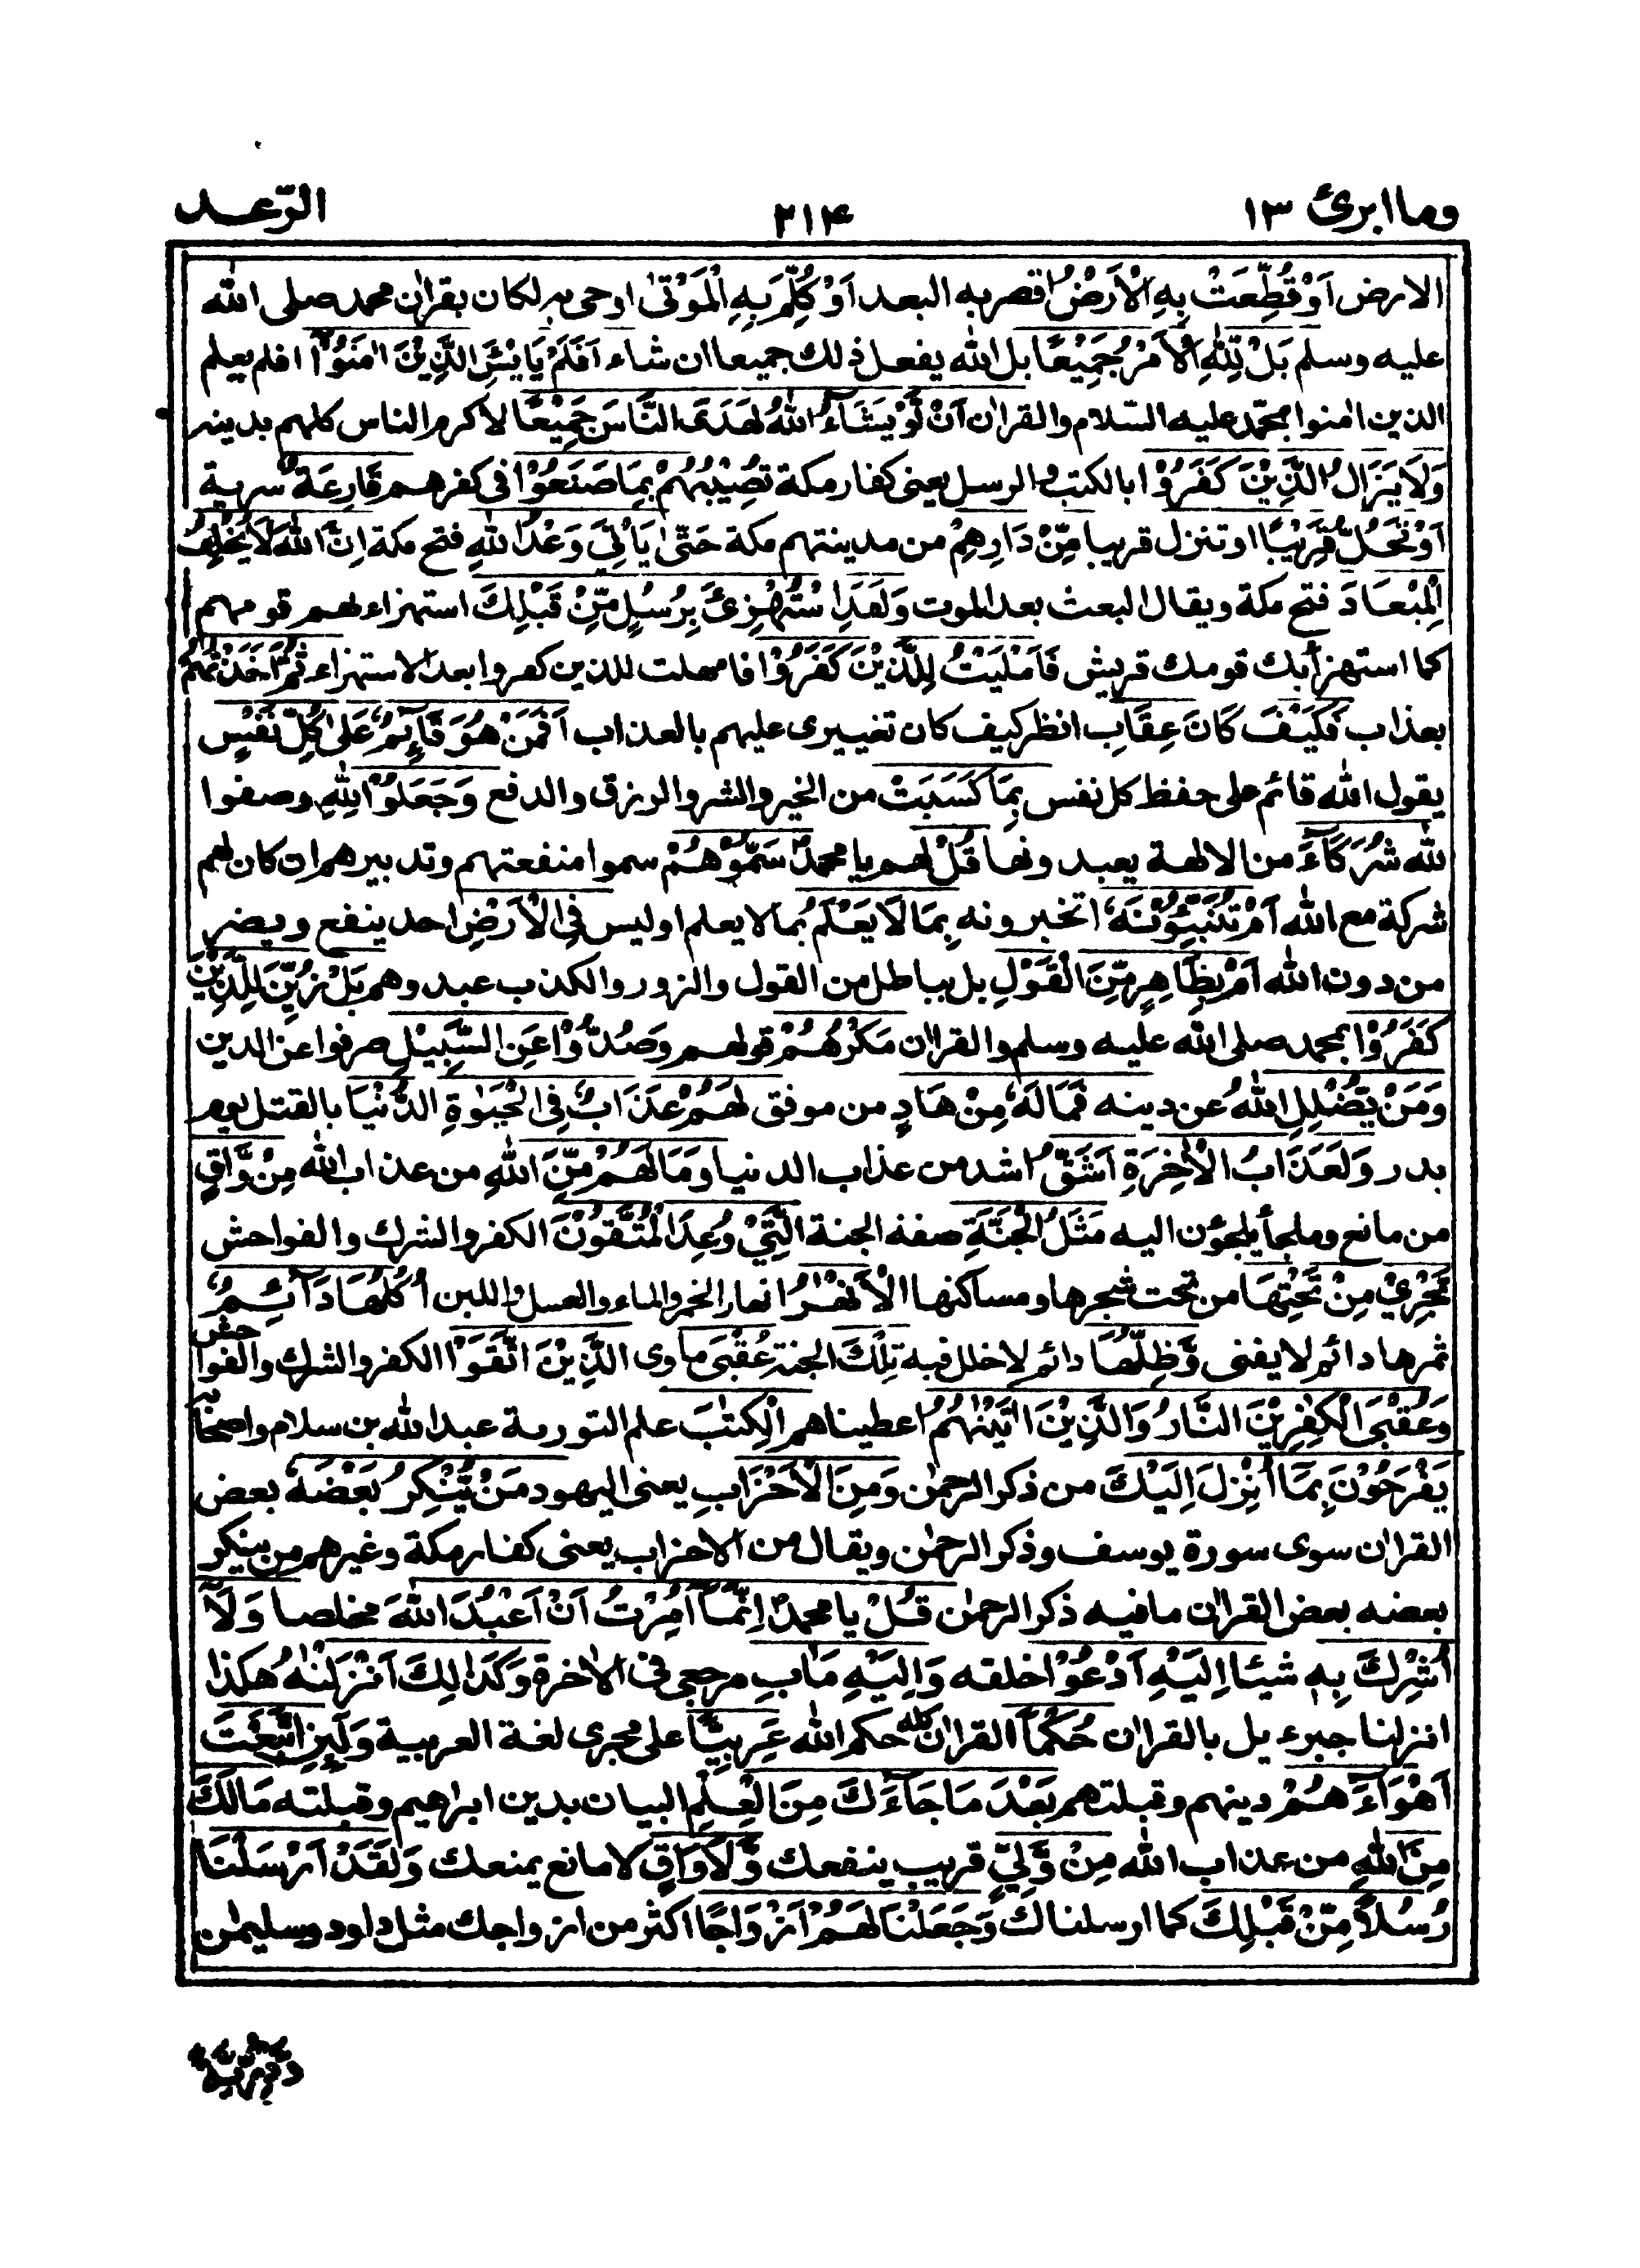 وما ابرئ ١٣
٢١٤
الرّعد
الارض اَوْ قُطِّعَتْ بِهِ الْاَرْضُ اقصر به البعد اَوْ كُلِّمَ بِهِ الْمَوْتٰى او حى به لكان بقراٰن محمد صلى الله
عليه وسلم بَلْ لِّلّٰهِ الْاَمْرُ جَمِيْعًا بل الله يفعل ذلك جميعا ان شاء اَفَلَمْ يَايْـَٔسِ الَّذِيْنَ اٰمَنُوْٓا افلم يعلم
الذين اٰمنوا بمحمّد عليه السّلام والقراٰن اَنْ لَّوْ يَشَآءُ اللّٰهُ لَهَدَى النَّاسَ جَمِيْعًا لاكرم الناس كلهم بدينه
وَلَا يَزَالُ الَّذِيْنَ كَفَرُوْا بالكتب والرسل يعنى كفار مكة تُصِيْبُهُمْ بِمَا صَنَعُوْا فى كفرهم قَارِعَةٌ سرية
اَوْ تَحُلُّ قَرِيْبًا او تنزل قريبا مِّنْ دَارِهِمْ من مدينتهم مكة حَتّٰى يَاْتِيَ وَعْدُ اللّٰهِ فتح مكة اِنَّ اللّٰهَ لَا يُخْلِفُ
الْمِيْعَادَ فتح مكة ويقال البعث بعد الموت وَلَقَدِ اسْتُهْزِئَ بِرُسُلٍ مِّنْ قَبْلِكَ استهزاء لهم قومهم
كما استهزأ بك قومك قريش فَاَمْلَيْتُ لِلَّذِيْنَ كَفَرُوْا فامهلت للذين كفروا بعد الاستهزاء ثُمَّ اَخَذْتُهُمْ
بعذاب فَكَيْفَ كَانَ عِقَابِ انظر كيف كان تغييرى عليهم بالعذاب اَفَمَنْ هُوَ قَآئِمٌ عَلٰى كُلِّ نَفْسٍ
يقول الله قائم على حفظ كل نفس بِمَا كَسَبَتْ من الخير والشر والرزق والدفع وَجَعَلُوْا لِلّٰهِ وصفوا
لله شُرَكَآءَ من الالهة يعبدونها قُلْ لهم يا محمدٌ سَمُّوْهُمْ سموا منفعتهم وتدبيرهم ان كان لهم
شركة مع الله اَمْ تُنَبِّـُٔوْنَهٗ اتخبرونه بِمَا لَا يَعْلَمُ بما لا يعلم او ليس فِي الْاَرْضِ احد ينفع ويضر
من دون الله اَمْ بِظَاهِرٍ مِّنَ الْقَوْلِ بل بباطل من القول والزور والكذب عبدوهم بَلْ زُيِّنَ لِلَّذِيْنَ
كَفَرُوْا بمحمد صلى الله عليه وسلم والقراٰن مَكْرُهُمْ قولهم وَصُدُّوْا عَنِ السَّبِيْلِ صرفوا عن الدين
وَمَنْ يُّضْلِلِ اللّٰهُ عن دينه فَمَا لَهٗ مِنْ هَادٍ من موفق لَهُمْ عَذَابٌ فِي الْحَيٰوةِ الدُّنْيَا بالقتل يوم
بدر وَلَعَذَابُ الْاٰخِرَةِ اَشَقُّ اشد من عذاب الدنيا وَمَا لَهُمْ مِّنَ اللّٰهِ من عذاب الله مِنْ وَّاقٍ
من مانع وملجأ يلجؤن اليه مَثَلُ الْجَنَّةِ صفة الجنة الَّتِيْ وُعِدَ الْمُتَّقُوْنَ الكفر والشرك والفواحش
تَجْرِيْ مِنْ تَحْتِهَا من تحت شجرها ومساكنها الْاَنْهٰرُ انهار الخمر والماء والعسل واللبن اُكُلُهَا دَآئِمٌ
ثمرها دائم لا يفنى وَّظِلُّهَا دائم لا خلل فيه تِلْكَ الجنة عُقْبَى ماوى الَّذِيْنَ اتَّقَوْا الكفر والشرك والفواحش
وَعُقْبَى الْكٰفِرِيْنَ النَّارُ وَالَّذِيْنَ اٰتَيْنٰهُمُ اعطيناهم الْكِتٰبَ علم التورىة عبد الله بن سلام واصحابه
يَفْرَحُوْنَ بِمَآ اُنْزِلَ اِلَيْكَ من ذكر الرحمٰن وَمِنَ الْاَحْزَابِ يعنى اليهود مَنْ يُّنْكِرُ بَعْضَهٗ بعض
القراٰن سوى سورة يوسف وذكر الرحمٰن ويقال من الاحزاب يعنى كفار مكة وغيرهم من ينكر
بعضه بعض القراٰن ما فيه ذكر الرحمٰن قُلْ يا محمدٌ اِنَّمَآ اُمِرْتُ اَنْ اَعْبُدَ اللّٰهَ مخلصا وَلَآ
اُشْرِكَ بِهٖ شيئا اِلَيْهِ اَدْعُوْا خلقه وَاِلَيْهِ مَاٰبِ مرجعى فى الاٰخرة وَكَذٰلِكَ اَنْزَلْنٰهُ هكذا
انزلنا جبرءيل بالقراٰن حُكْمًا القراٰن كله حكم الله عَرَبِيًّا على مجرى لغة العربية وَلَئِنِ اتَّبَعْتَ
اَهْوَآءَهُمْ دينهم وقبلتهم بَعْدَ مَا جَآءَكَ مِنَ الْعِلْمِ البيان بدين ابراهيم وقبلته مَا لَكَ
مِنَ اللّٰهِ من عذاب الله مِنْ وَّلِيٍّ قريب ينفعك وَّلَا وَاقٍ لا مانع يمنعك وَلَقَدْ اَرْسَلْنَا
رُسُلًا مِّنْ قَبْلِكَ كما ارسلناك وَجَعَلْنَا لَهُمْ اَزْوَاجًا اكثر من ازواجك مثل داود وسليمٰن